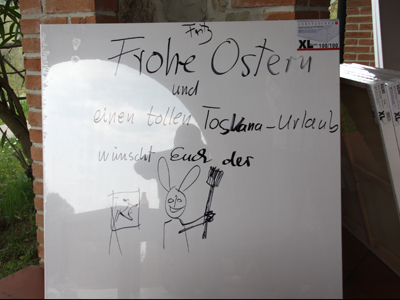 Fritz
Frohe Ostern
und
einen tollen Toskana-Urlaub
wünscht Euch der
XL 100/100